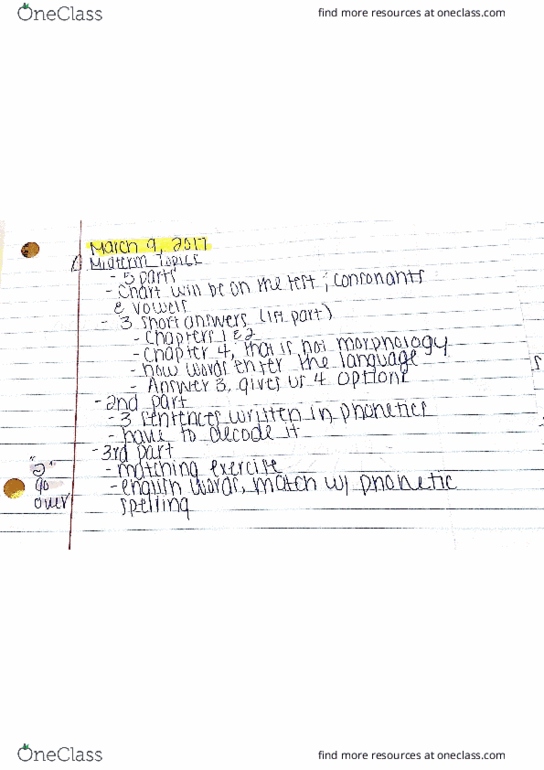 OneClass
find more resources at oneclass.com
March 9, 2017
Midterm Topics
- 5 parts
- Chart will be on the test ; consonants
& vowels
- 3 short answers (1st part)
- Chapters 1 & 2
- Chapter 4, that is not morphology
- how words enter the language
- Answer 3, gives us 4 options
- 2nd part
- 3 sentences written in phonetics
- have to decode it
- 3rd part
- matching exercise
- english words, match w/ phonetic
spelling
go
over
OneClass
find more resources at oneclass.com